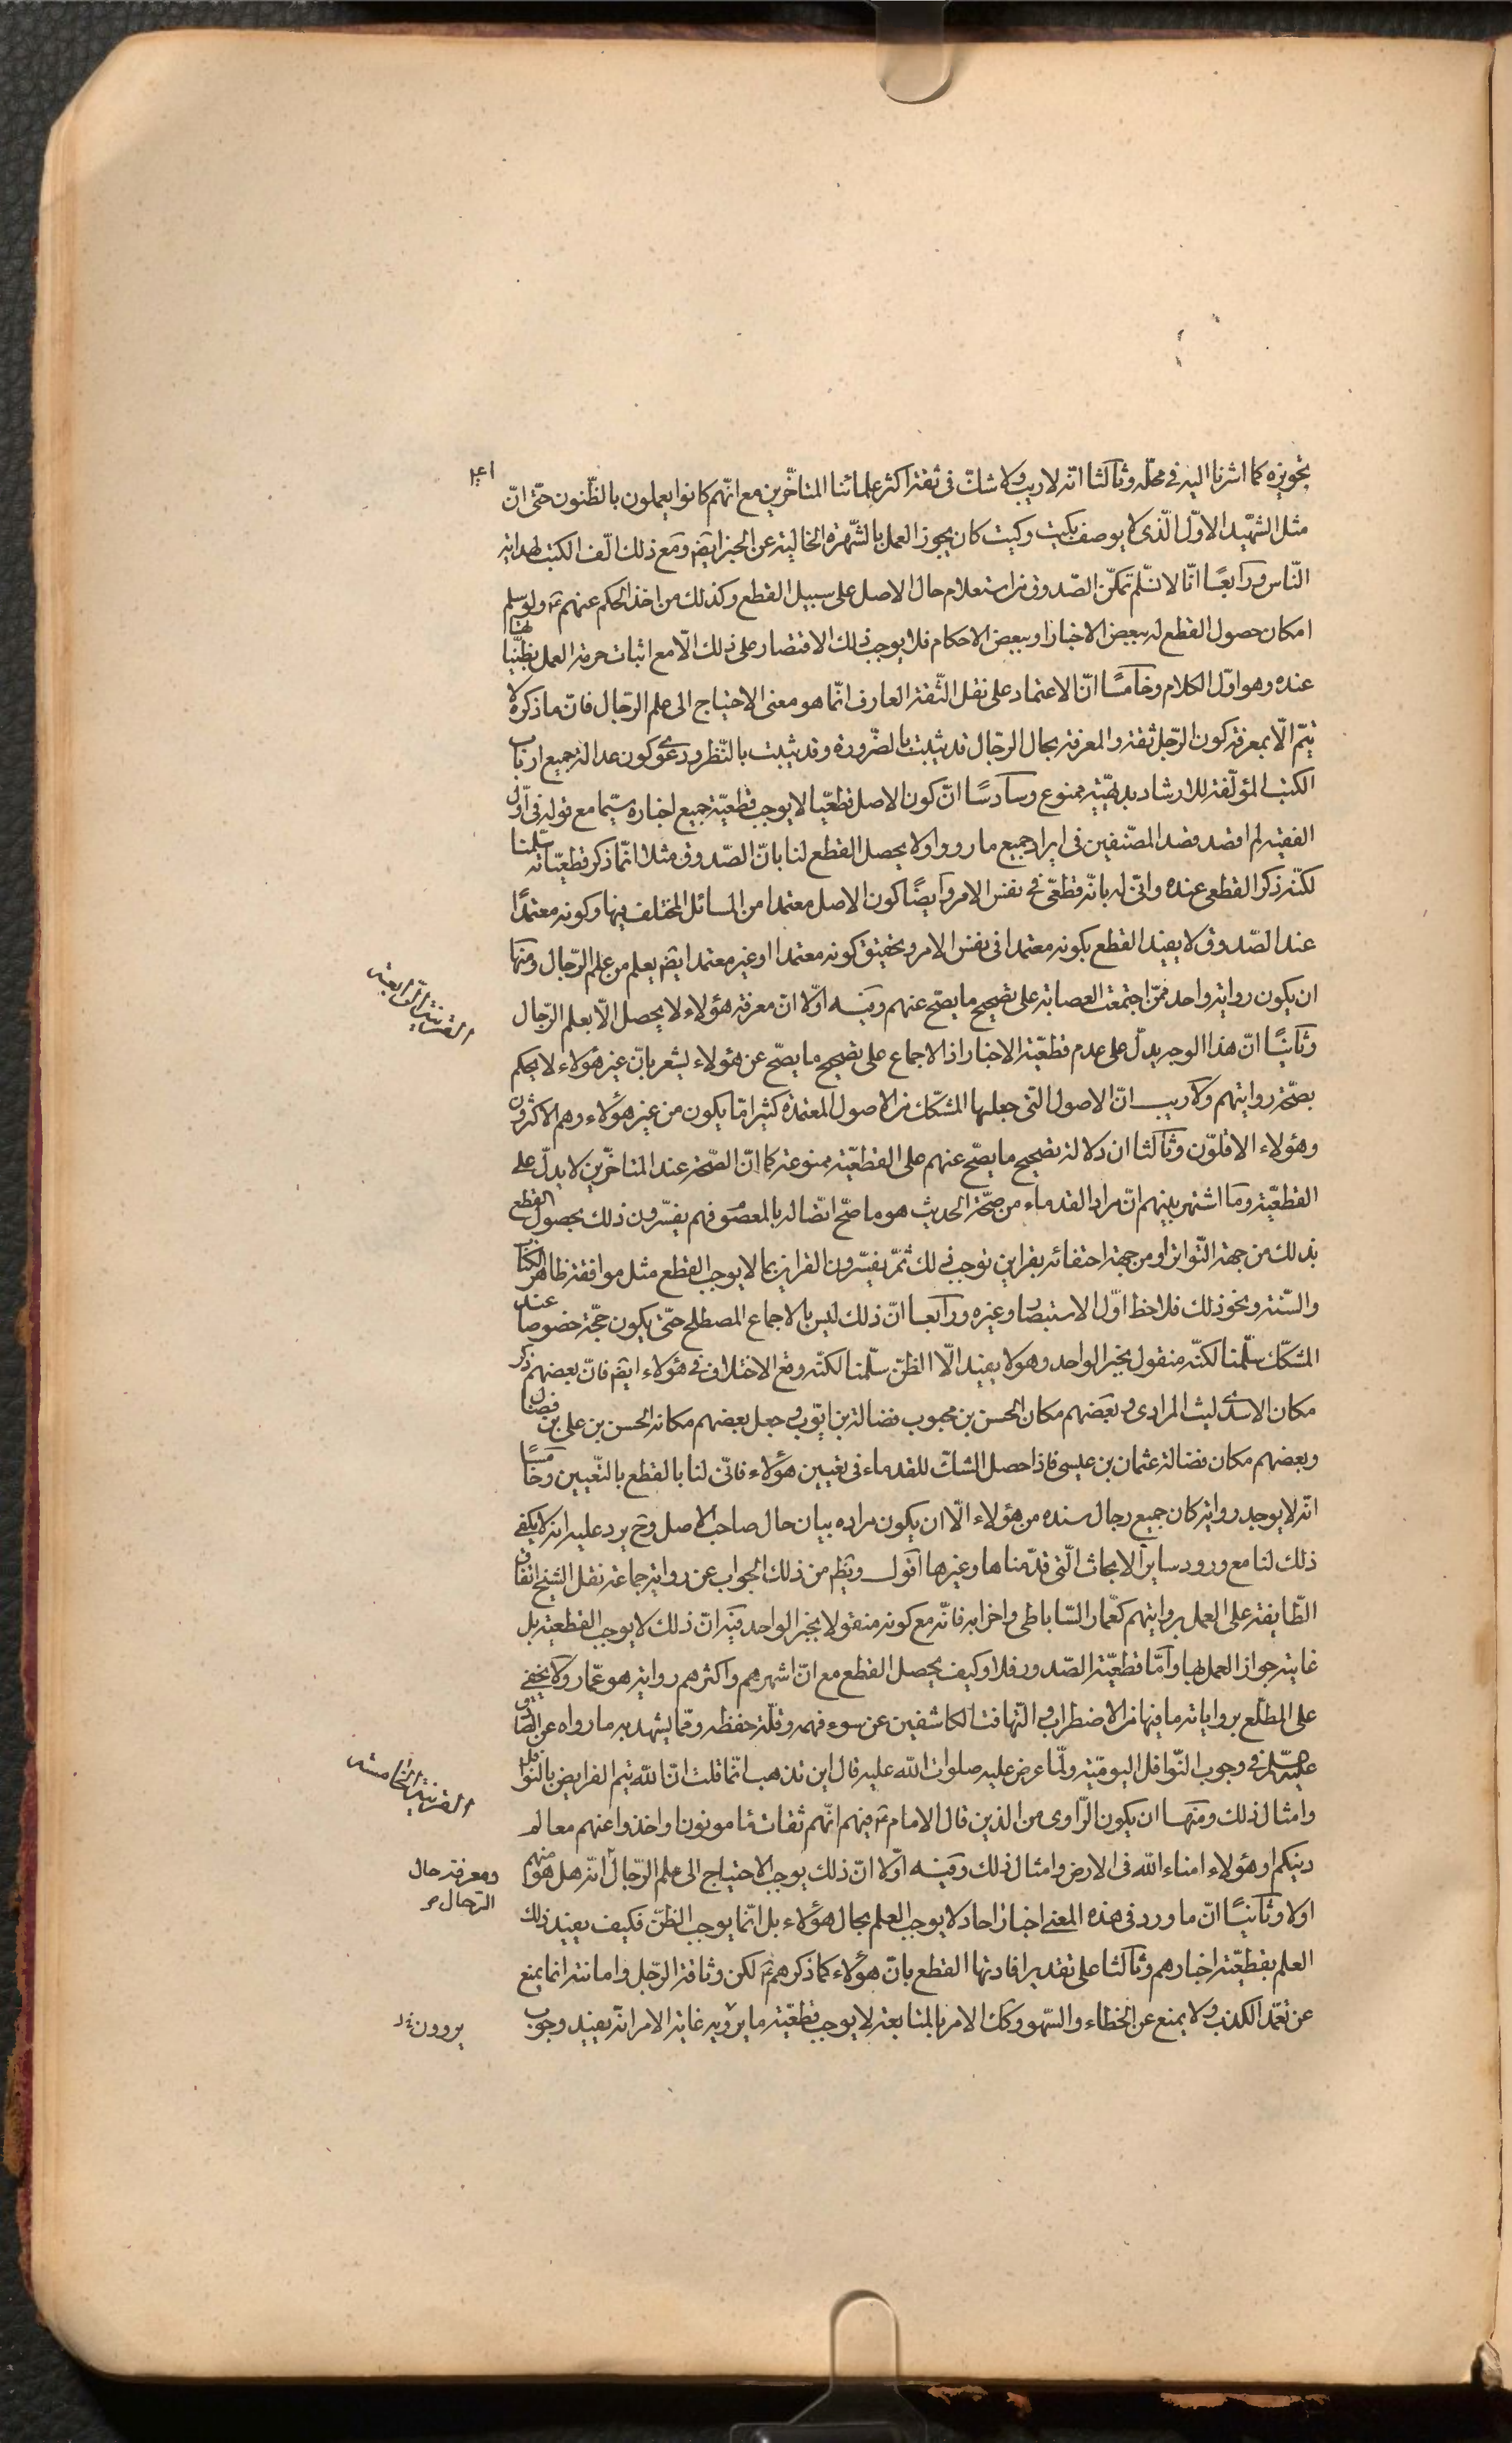 بتجويزه كما اشرنا اليه فى محلّه وثالثا انّه لا ريب ولا شكّ فى ثقة اكثر علمائنا المتأخّرين مع انّهم كانوا يعملون بالظّنون حتّى انّ
مثل الشهيد الاوّل الّذى لا يوصف بكيت وكيت كان يجوز العمل بالشّهرة الخالية عن الخبر ايضا ومع ذلك الّف الكتب لهداية
النّاس ورابعًا انّا لا نسلّم تمكّن الصّدوق من استعلام حال الاصل على سبيل القطع وكذلك من اخذ الحكم عنهم ع ولو سلم
امكان حصول القطع له ببعض الاخبار او ببعض الاحكام فلا يوجب ذلك الاقتصار على ذلك الّا مع اثبات حرمة العمل بظنّياتها
عنده وهو اوّل الكلام وخامسًا انّ الاعتماد على نقل الثّقة العارف انّما هو معنى الاحتياج الى علم الرّجال فانّ ما ذكره لا
يتمّ الّا بمعرفة كون الرّجل ثقة والمعرفة بحال الرّجال قد يثبت بالضّرورة وقد يثبت بالنّظر ودعوى كون عدالة جميع ارباب
الكتب المؤلّفة للارشاد بديهيّة ممنوع وسادسًا انّ كون الاصل قطعيّا لا يوجب قطعيّة جميع اخباره سيّما مع قوله فى اوّل
الفقيه لم اقصد قصد المصنّفين فى ايراد جميع ما رووا ولا يحصل القطع لنا بانّ الصّدوق مثلا انّما ذكر قطعيّاته سلّمنا
لكنّه ذكر القطعى عنده وانّى له بانّه قطعىّ فى نفس الامر وايضًا كون الاصل معتمدا من المسائل المختلف فيها وكونه معتمدًا
عند الصّدوق لا يفيد القطع بكونه معتمدا فى نفس الامر وتحقيق كونه معتمدا او غير معتمد ايضا يعلم من علم الرّجال ومنها
القرينة الرّابعة
ان يكون رواية واحد ممّن اجتمعت العصابة على تصحيح ما يصحّ عنهم وفيه اوّلا انّ معرفة هؤلاء لا يحصل الّا بعلم الرّجال
وثانيًا انّ هذا الوجه يدلّ على عدم قطعيّة الاخبار اذ الاجماع على تصحيح ما يصحّ عن هؤلاء يشعر بانّ غير هؤلاء لا يحكم
بصحّة روايتهم ولا ريب انّ الاصول التى جعلها المشكّك من الاصول المعتمدة كثيرا ما يكون من غير هؤلاء وهم الاكثرون
وهؤلاء الاقلّون وثالثا ان دلالة تصحيح ما يصحّ عنهم على القطعيّة ممنوعة كما انّ الصّحة عند المتاخّرين لا يدلّ على
القطعيّة وما اشتهر بينهم انّ مراد القدماء من صحّة الحديث هو ما صحّ اتصاله بالمعصوم فهم يفسّرون ذلك بحصول القطع
بذلك من جهة التّواتر او من جهة احتفائه بقراين توجب ذلك ثمّ يفسّرون القراين بما لا يوجب القطع مثل موافقة ظاهر الكتاب
والسّنة ونحو ذلك فلاحظ اوّل الاستبصار وغيره ورابعا انّ ذلك ليس بالاجماع المصطلح حتّى يكون حجّة خصوصا عند
المشكّك سلّمنا لكنّه منقول بخبر الواحد وهو لا يفيد الّا الظنّ سلّمنا لكنّه وقع الاختلاف فى هؤلاء ايضا فانّ بعضهم ذكر
مكان الاسدى ليث المرادى وبعضهم مكان الحسن بن محبوب فضالة بن ايّوب وجعل بعضهم مكانه الحسن بن على بن فضال
وبعضهم مكان فضالة عثمان بن عيسى فاذا حصل الشكّ للقدماء فى تعيين هؤلاء فانّى لنا بالقطع بالتّعيين وخامسًا
انّه لا يوجد رواية كان جميع رجال سنده من هؤلاء الّا ان يكون مراده بيان حال صاحب الاصل وح يرد عليه انه لا يكفى
ذلك لنا مع ورود ساير الابحاث الّتى قدّمناها وغيرها اقول ويظهر من ذلك الجواب عن رواية جماعة نقل الشيخ اتفاق
الطّايفة على العمل بروايتهم كعمّار السّاباطى واضرابه فانّه مع كونه منقولا بخبر الواحد فيه انّ ذلك لا يوجب القطعية بل
غايته جواز العمل بها وامّا قطعيّة الصّدور فلا وكيف يحصل القطع مع انّ اشهرهم واكثرهم رواية هو عمّار ولا يخفى
على المطّلع بروايته ما فيها من الاضطراب والتّهافت الكاشفين عن سوء فهمه وقلّة حفظه وممّا يشهد به ما رواه عن الصّادق
عليه السلام فى وجوب النّوافل اليوميّة ولمّا عرض عليه صلوات الله عليه قال اين تذهب انّما قلت انّ الله يتمّ الفرايض بالنّوافل
القرينة الخامسة
وامثال ذلك ومنها ان يكون الرّاوى من الذين قال الامام ع فيهم انّهم ثقات مأمونون او خذوا عنهم معالم
دينكم او هؤلاء امناء الله فى الارض وامثال ذلك وفيه اوّلا انّ ذلك يوجب الاحتياج الى علم الرّجال انّه هل هو منهم
ومعرفة حال
الرّجال
اولا وثانيًا انّ ما ورد فى هذه المعنى اخبار احاد لا يوجب العلم بحال هؤلاء بل انّما يوجب الظنّ فكيف يفيد ذلك
العلم بقطعيّة اخبارهم وثالثا على تقدير افادتها القطع بانّ هؤلاء كما ذكرهم ع لكن وثاقة الرّجل وامانته انما يمنع
عن تعمّد الكذب ولا يمنع عن الخطاء والسّهو وكك الامر بالمتابعة لا يوجب قطعيّة ما يرويه غاية الامر انّه يفيد وجوب
يروون